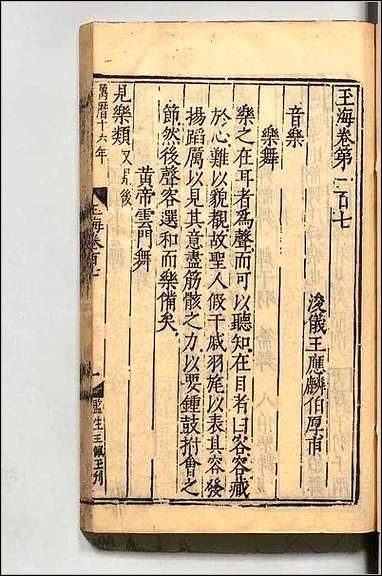 玉海卷第一百七
浚儀王應麟伯厚甫
音樂
樂舞
樂之在耳者爲聲而可以聽知在目者曰容容藏
於心難以貌觀故聖人假干戚羽旄以表其容發
揚蹈厲以見其意盡筋骸之力以要鍾鼓拊會之
節然後聲容選和而樂備矣
黄帝雲門舞
見樂類又見後
萬曆十六年
玉海卷百七
一
監生王佩玉刊